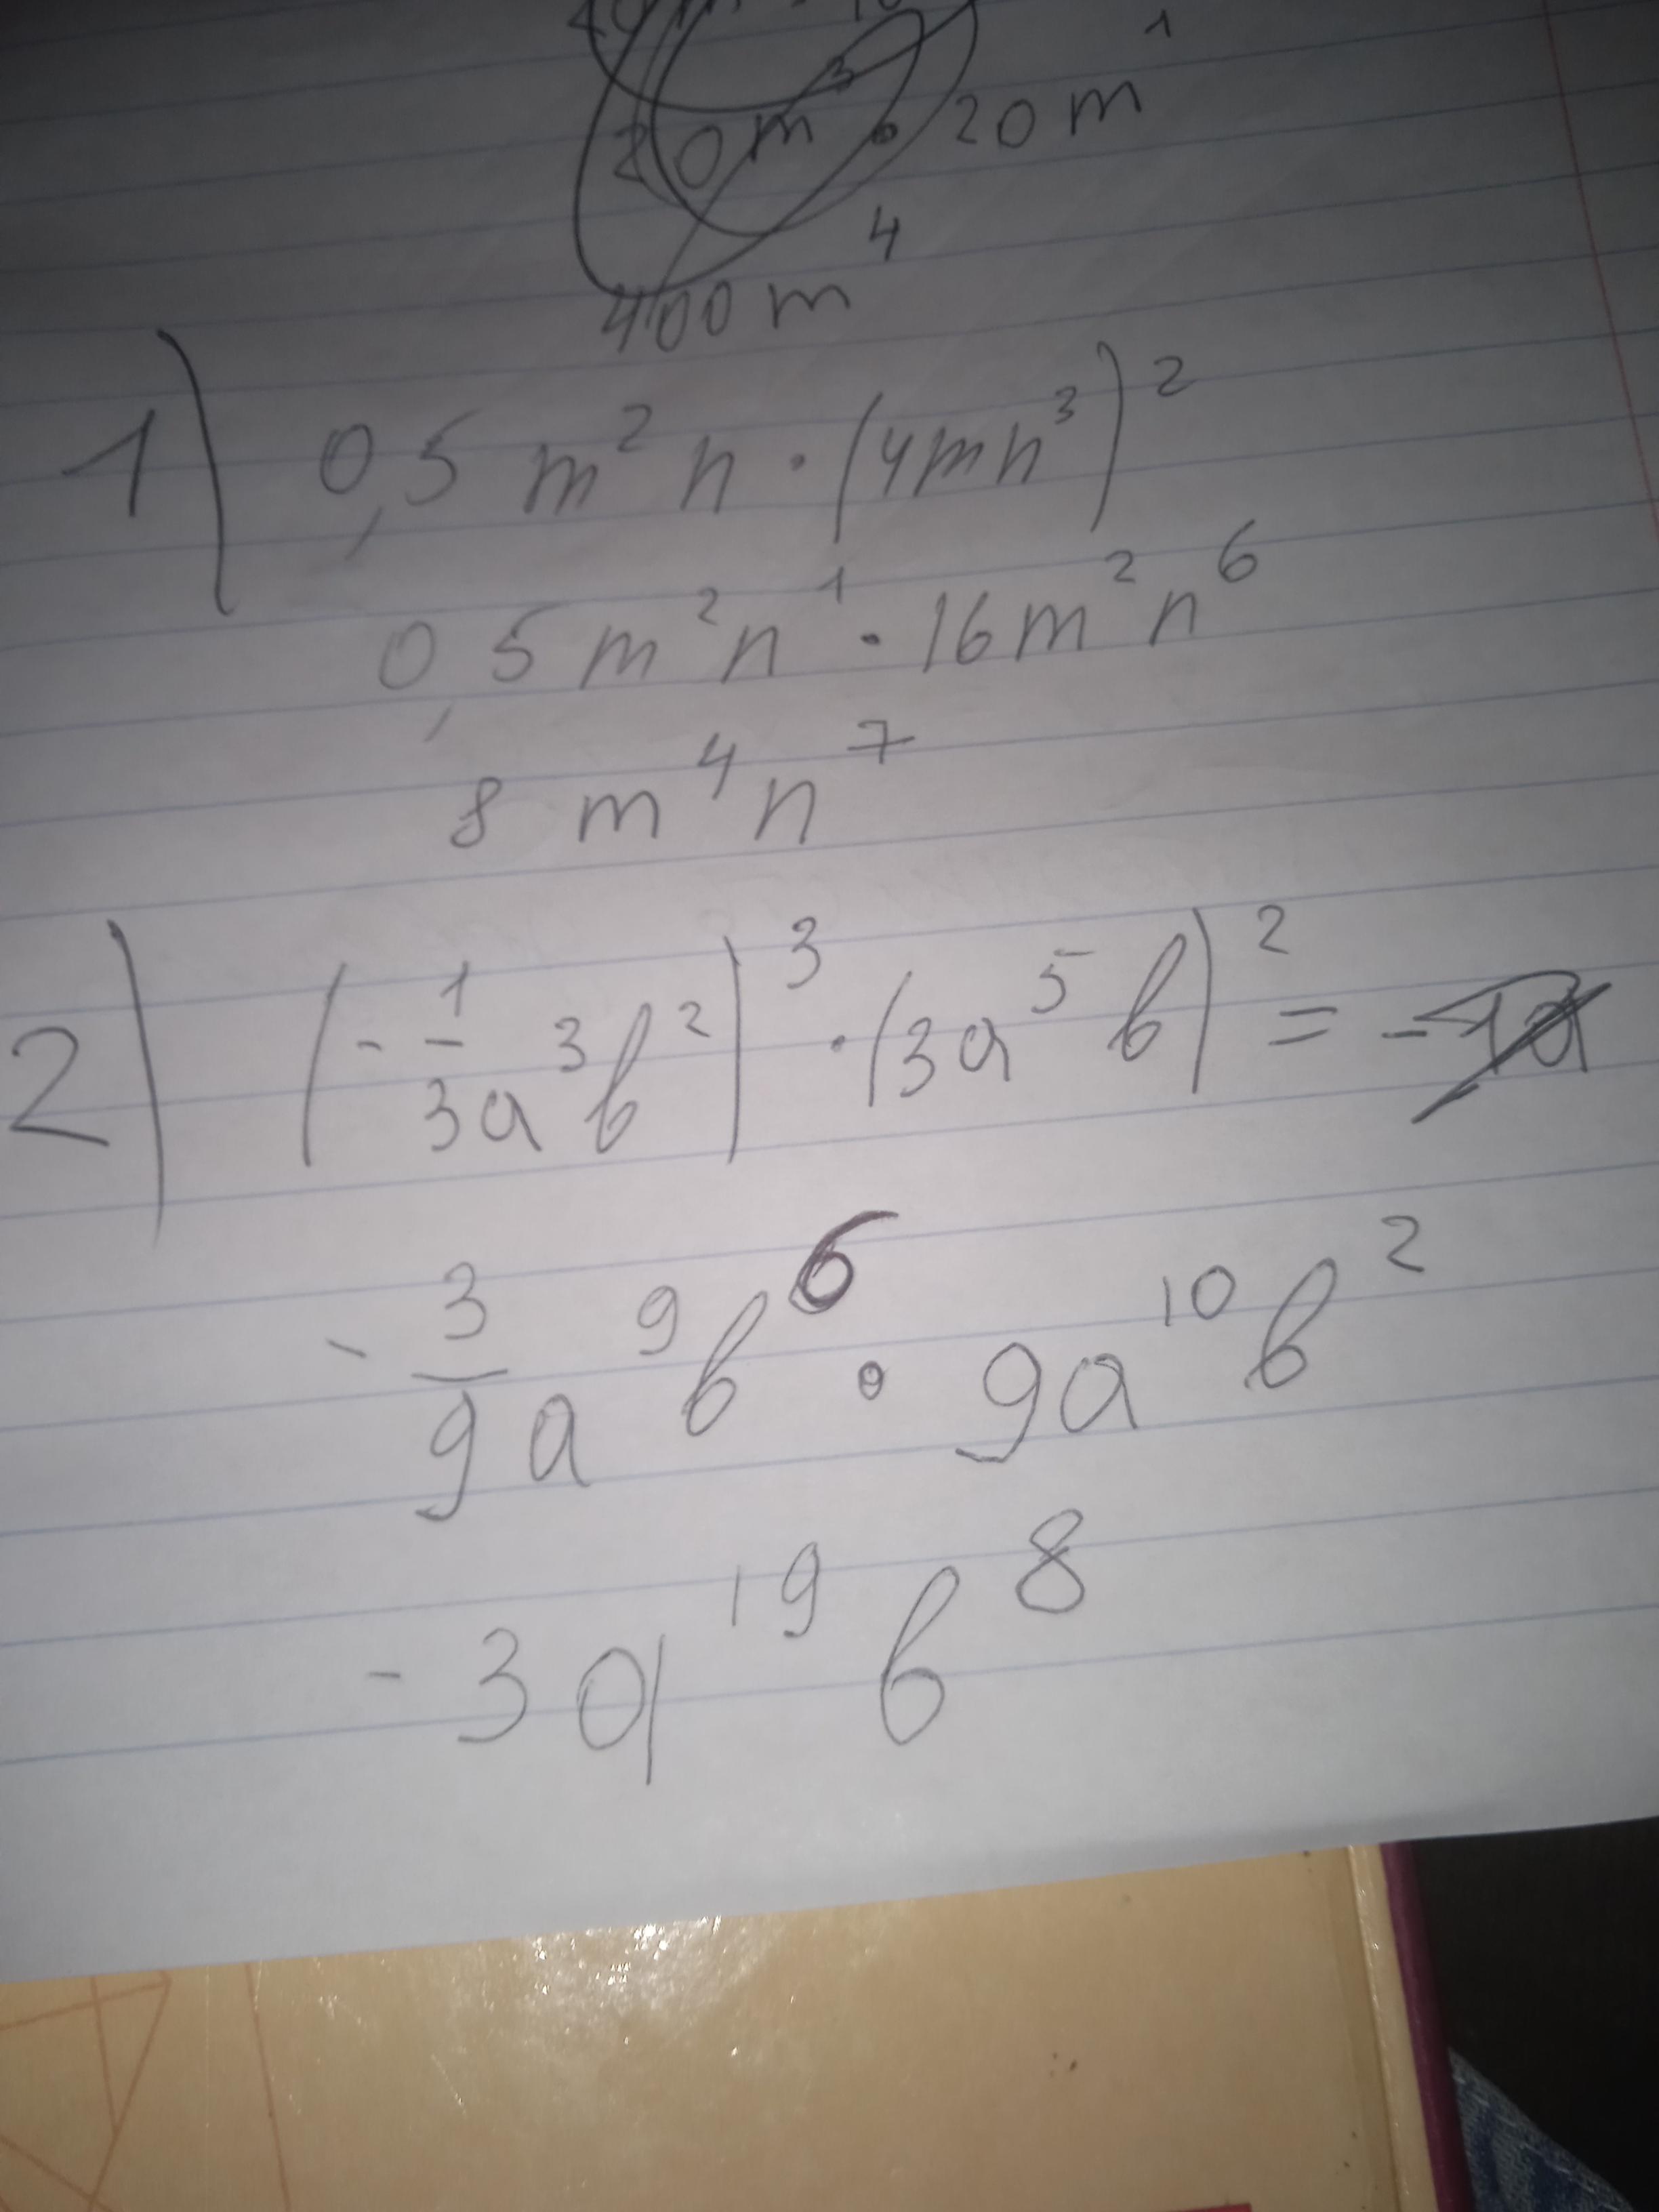 20m³ · 20m¹
400m⁴
1) 0,5m²n · (4mn³)²
0,5m²n¹ · 16m²n⁶
8m⁴n⁷
2) (-1/3a³b²)³ · (3a⁵b)² = -
-3/9a⁹b⁶ · 9a¹⁰b²
-3a¹⁹b⁸